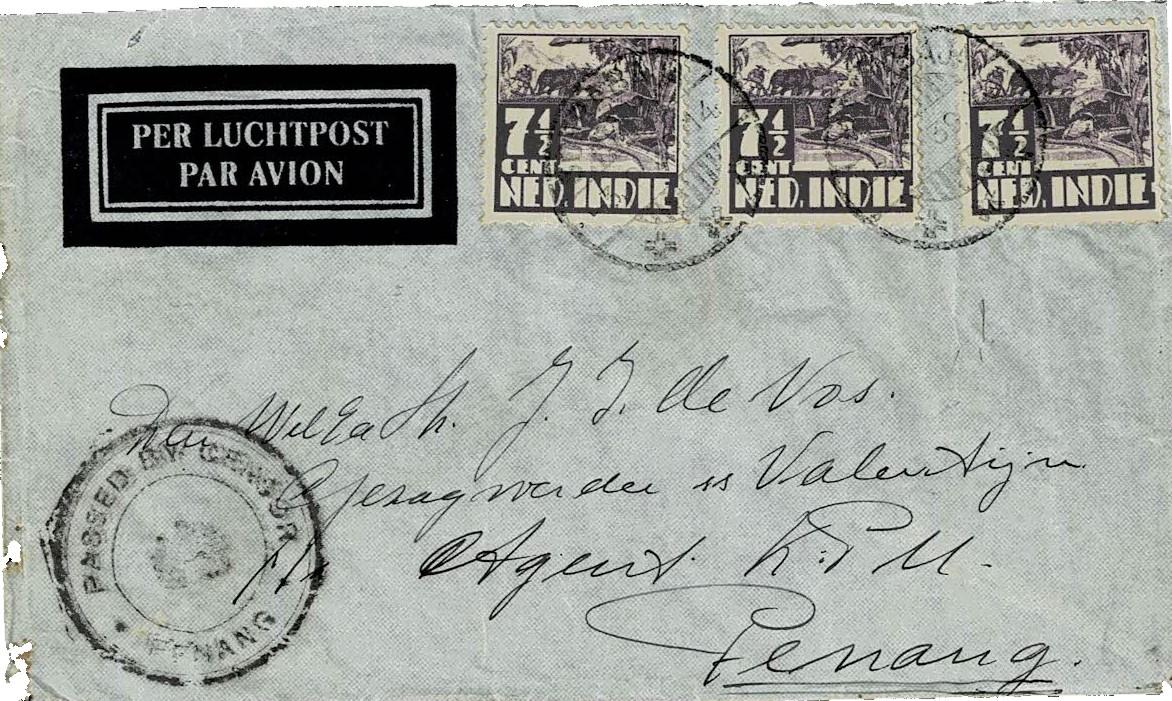 PER LUCHTPOST
PAR AVION
7½
CENT
NED. INDIE
7½
CENT
NED. INDIE
7½
CENT
NED. INDIE
14
Den WelEd. Hr. J. J. de Vos.
Gezagvoerder ss Valentijn
p/a Agent K.P.M.
Penang.
PASSED BY CENSOR
PENANG